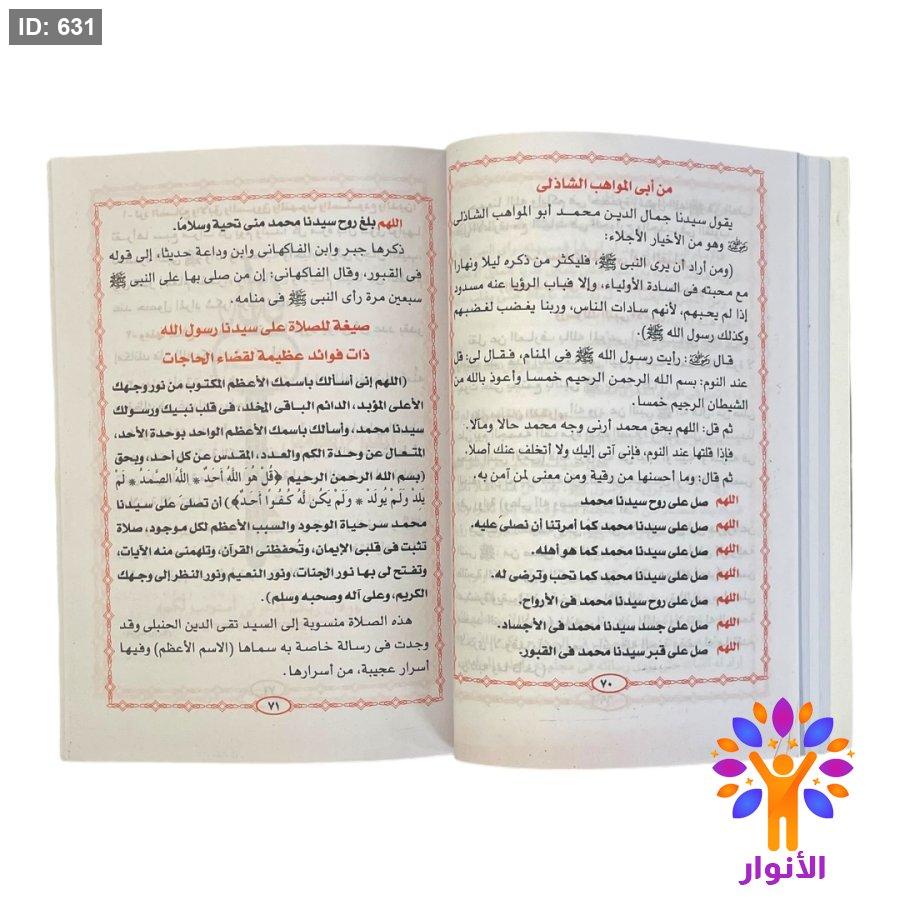 ID: 631
من أبى المواهب الشاذلى
يقول سيدنا جمال الدين محمد أبو المواهب الشاذلى
رضي الله عنه وهو من الأخيار الأجلاء:
(ومن أراد أن يرى النبى ﷺ، فليكثر من ذكره ليلا ونهارا
مع محبته فى السادة الأولياء، وإلا فباب الرؤيا عنه مسدود
إذا لم يحبهم، لأنهم سادات الناس، وربنا يغضب لغضبهم
وكذلك رسول الله ﷺ).
قال رضي الله عنه: رأيت رسول الله ﷺ فى المنام، فقال لى: قل
عند النوم: بسم الله الرحمن الرحيم خمسا وأعوذ بالله من
الشيطان الرجيم خمسا.
ثم قل: اللهم بحق محمد أرنى وجه محمد حالا ومآلا.
فإذا قلتها عند النوم، فإنى آتى إليك ولا أتخلف عنك أصلا.
ثم قال: وما أحسنها من رقية ومن معنى لمن آمن به.
اللهم صل على روح سيدنا محمد
اللهم صل على سيدنا محمد كما أمرتنا أن نصلى عليه.
اللهم صل على سيدنا محمد كما هو أهله.
اللهم صل على سيدنا محمد كما تحب وترضى له.
اللهم صل على روح سيدنا محمد فى الأرواح.
اللهم صل على جسد سيدنا محمد فى الأجساد.
اللهم صل على قبر سيدنا محمد فى القبور.
٧٠
اللهم بلغ روح سيدنا محمد منى تحية وسلاما.
ذكرها جبر وابن الفاكهانى وابن وداعة حديثا، إلى قوله
فى القبور، وقال الفاكهانى: إن من صلى بها على النبى ﷺ
سبعين مرة رأى النبى ﷺ فى منامه.
صيغة للصلاة على سيدنا رسول الله
ذات فوائد عظيمة لقضاء الحاجات
(اللهم إنى أسألك باسمك الأعظم المكتوب من نور وجهك
الأعلى المؤبد، الدائم الباقى المخلد، فى قلب نبيك ورسولك
سيدنا محمد، وأسألك باسمك الأعظم الواحد بوحدة الأحد،
المتعال عن وحدة الكم والعدد، المقدس عن كل أحد، وبحق
(بسم الله الرحمن الرحيم ﴿قُلْ هُوَ اللَّهُ أَحَدٌ * اللَّهُ الصَّمَدُ * لَمْ
يَلِدْ وَلَمْ يُولَدْ * وَلَمْ يَكُن لَّهُ كُفُوًا أَحَدٌ﴾) أن تصلى على سيدنا
محمد سر حياة الوجود والسبب الأعظم لكل موجود، صلاة
تثبت فى قلبى الإيمان، وتُحفظنى القرآن، وتلهمنى منه الآيات،
وتفتح لى بها نور الجنات، ونور النعيم ونور النظر إلى وجهك
الكريم، وعلى آله وصحبه وسلم).
هذه الصلاة منسوبة إلى السيد تقى الدين الحنبلى وقد
وجدت فى رسالة خاصة به سماها (الاسم الأعظم) وفيها
أسرار عجيبة، من أسرارها.
٧١
الأنوار